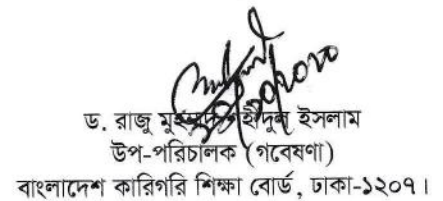 ড. রাজু মুহম্মদ শহীদুল ইসলাম
উপ-পরিচালক (গবেষণা)
বাংলাদেশ কারিগরি শিক্ষা বোর্ড, ঢাকা-১২০৭।